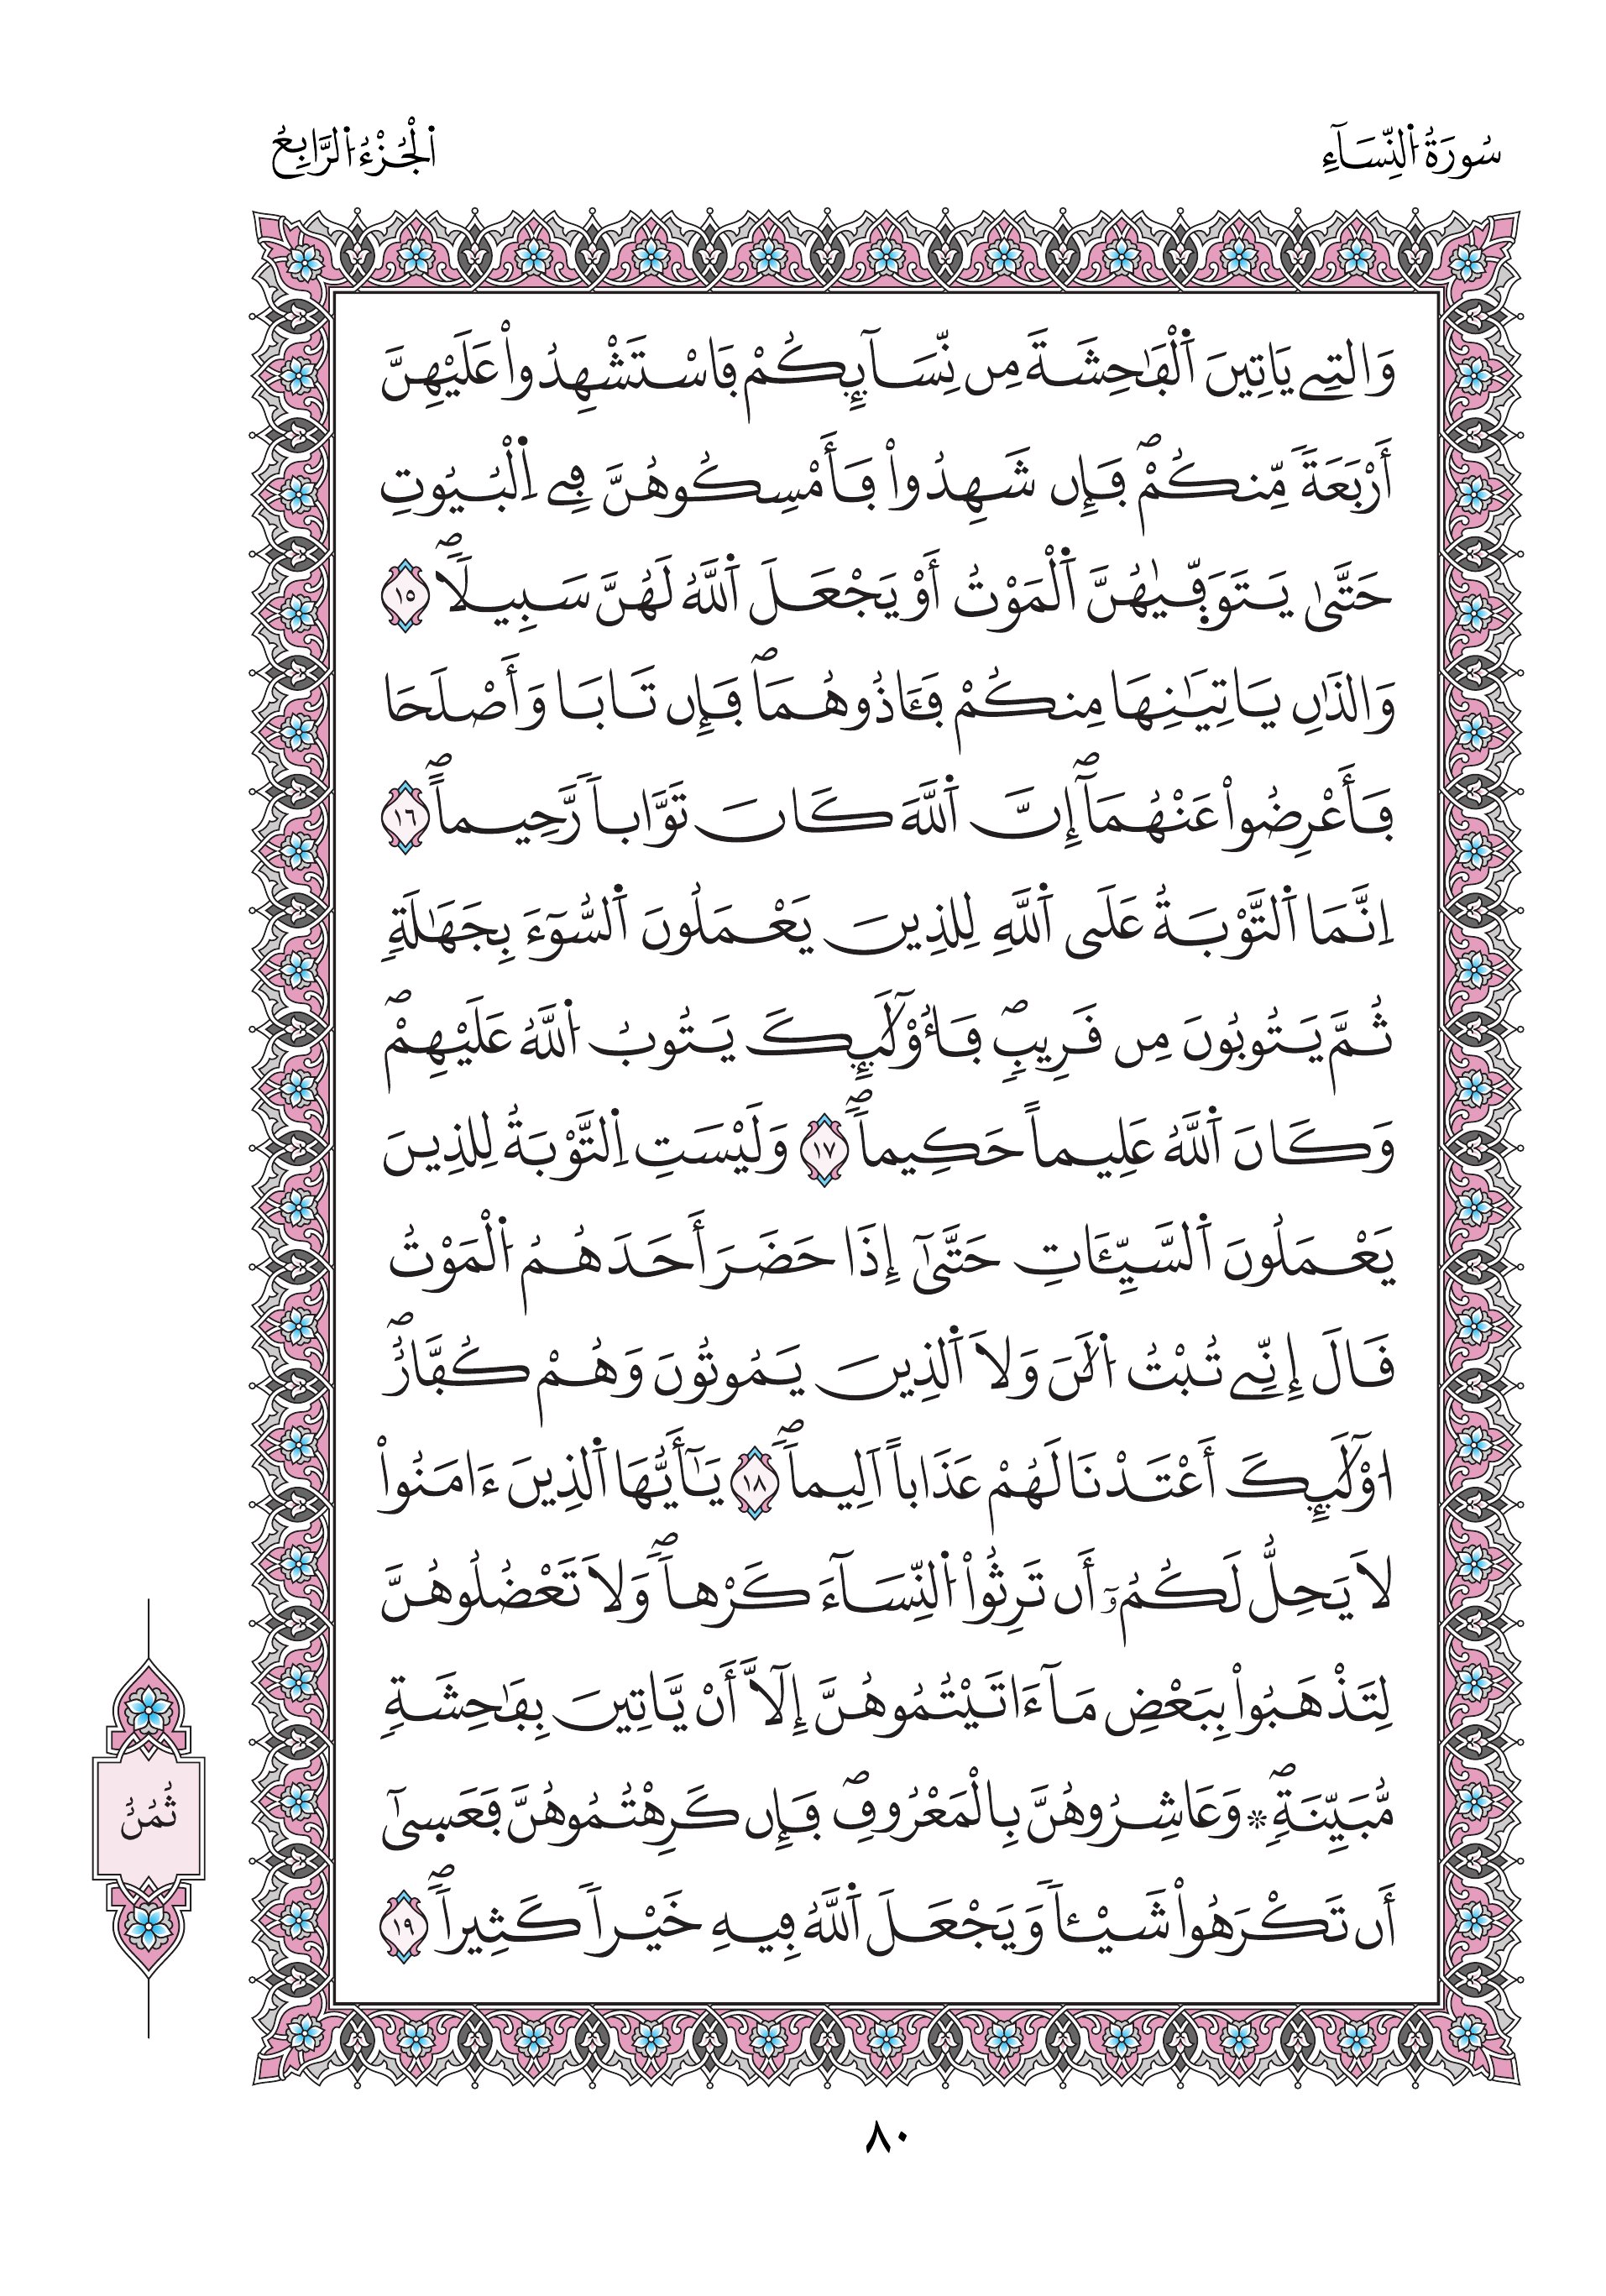 سُورَةُ اُلنِّسَآءِ
اَلْجُزْءُ اُلرَّابِعُ
وَالتِے يَاتِينَ اَ۬لْفَٰحِشَةَ مِن نِّسَآئِكُمْ فَاسْتَشْهِدُواْ عَلَيْهِنَّ
أَرْبَعَةٗ مِّنكُمْۖ فَإِن شَهِدُواْ فَأَمْسِكُوهُنَّ فِے اِ۬لْبُيُوتِ
حَتَّىٰ يَتَوَفّ۪يٰهُنَّ اَ۬لْمَوْتُ أَوْ يَجْعَلَ اَ۬للَّهُ لَهُنَّ سَبِيلاٗۖ ١٥
وَالذَٰنِ يَاتِيَٰنِهَا مِنكُمْ فَـَٔاذُوهُمَاۖ فَإِن تَابَا وَأَصْلَحَا
فَأَعْرِضُواْ عَنْهُمَآۖ إِنَّ اَ۬للَّهَ كَانَ تَوَّاباٗ رَّحِيماًۖ ١٦
اِنَّمَا اَ۬لتَّوْبَةُ عَلَى اَ۬للَّهِ لِلذِينَ يَعْمَلُونَ اَ۬لسُّوٓءَ بِجَهَٰلَةٖ
ثُمَّ يَتُوبُونَ مِن قَرِيبٖۖ فَأُوْلَٰٓئِكَ يَتُوبُ اُ۬للَّهُ عَلَيْهِمْۖ
وَكَانَ اَ۬للَّهُ عَلِيماً حَكِيماٗۖ ١٧ وَلَيْسَتِ اِ۬لتَّوْبَةُ لِلذِينَ
يَعْمَلُونَ اَ۬لسَّيِّـَٔاتِ حَتَّىٰٓ إِذَا حَضَرَ أَحَدَهُمُ اُ۬لْمَوْتُ
قَالَ إِنِّے تُبْتُ اُ۬لَٰنَ وَلَا اَ۬لذِينَ يَمُوتُونَ وَهُمْ كُفَّارٌۖ
ا۟وْلَٰٓئِكَ أَعْتَدْنَا لَهُمْ عَذَاباً اَلِيماٗۖ ١٨ يَٰٓأَيُّهَا اَ۬لذِينَ ءَامَنُواْ
لَا يَحِلُّ لَكُمُۥٓ أَن تَرِثُواْ اُ۬لنِّسَآءَ كَرْهاٗۖ وَلَا تَعْضُلُوهُنَّ
لِتَذْهَبُواْ بِبَعْضِ مَآ ءَاتَيْتُمُوهُنَّ إِلَّآ أَنْ يَّاتِينَ بِفَٰحِشَةٖ
مُّبَيِّنَةٖۖ ۞ وَعَاشِرُوهُنَّ بِالْمَعْرُوفِۖ فَإِن كَرِهْتُمُوهُنَّ فَعَس۪ىٰٓ
أَن تَكْرَهُواْ شَيْـٔاٗ وَيَجْعَلَ اَ۬للَّهُ فِيهِ خَيْراٗ كَثِيراٗۖ ١٩
ثُمُنُ
٨٠